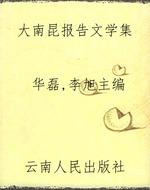 大南昆报告文学集
华磊,李旭主编
云南人民出版社